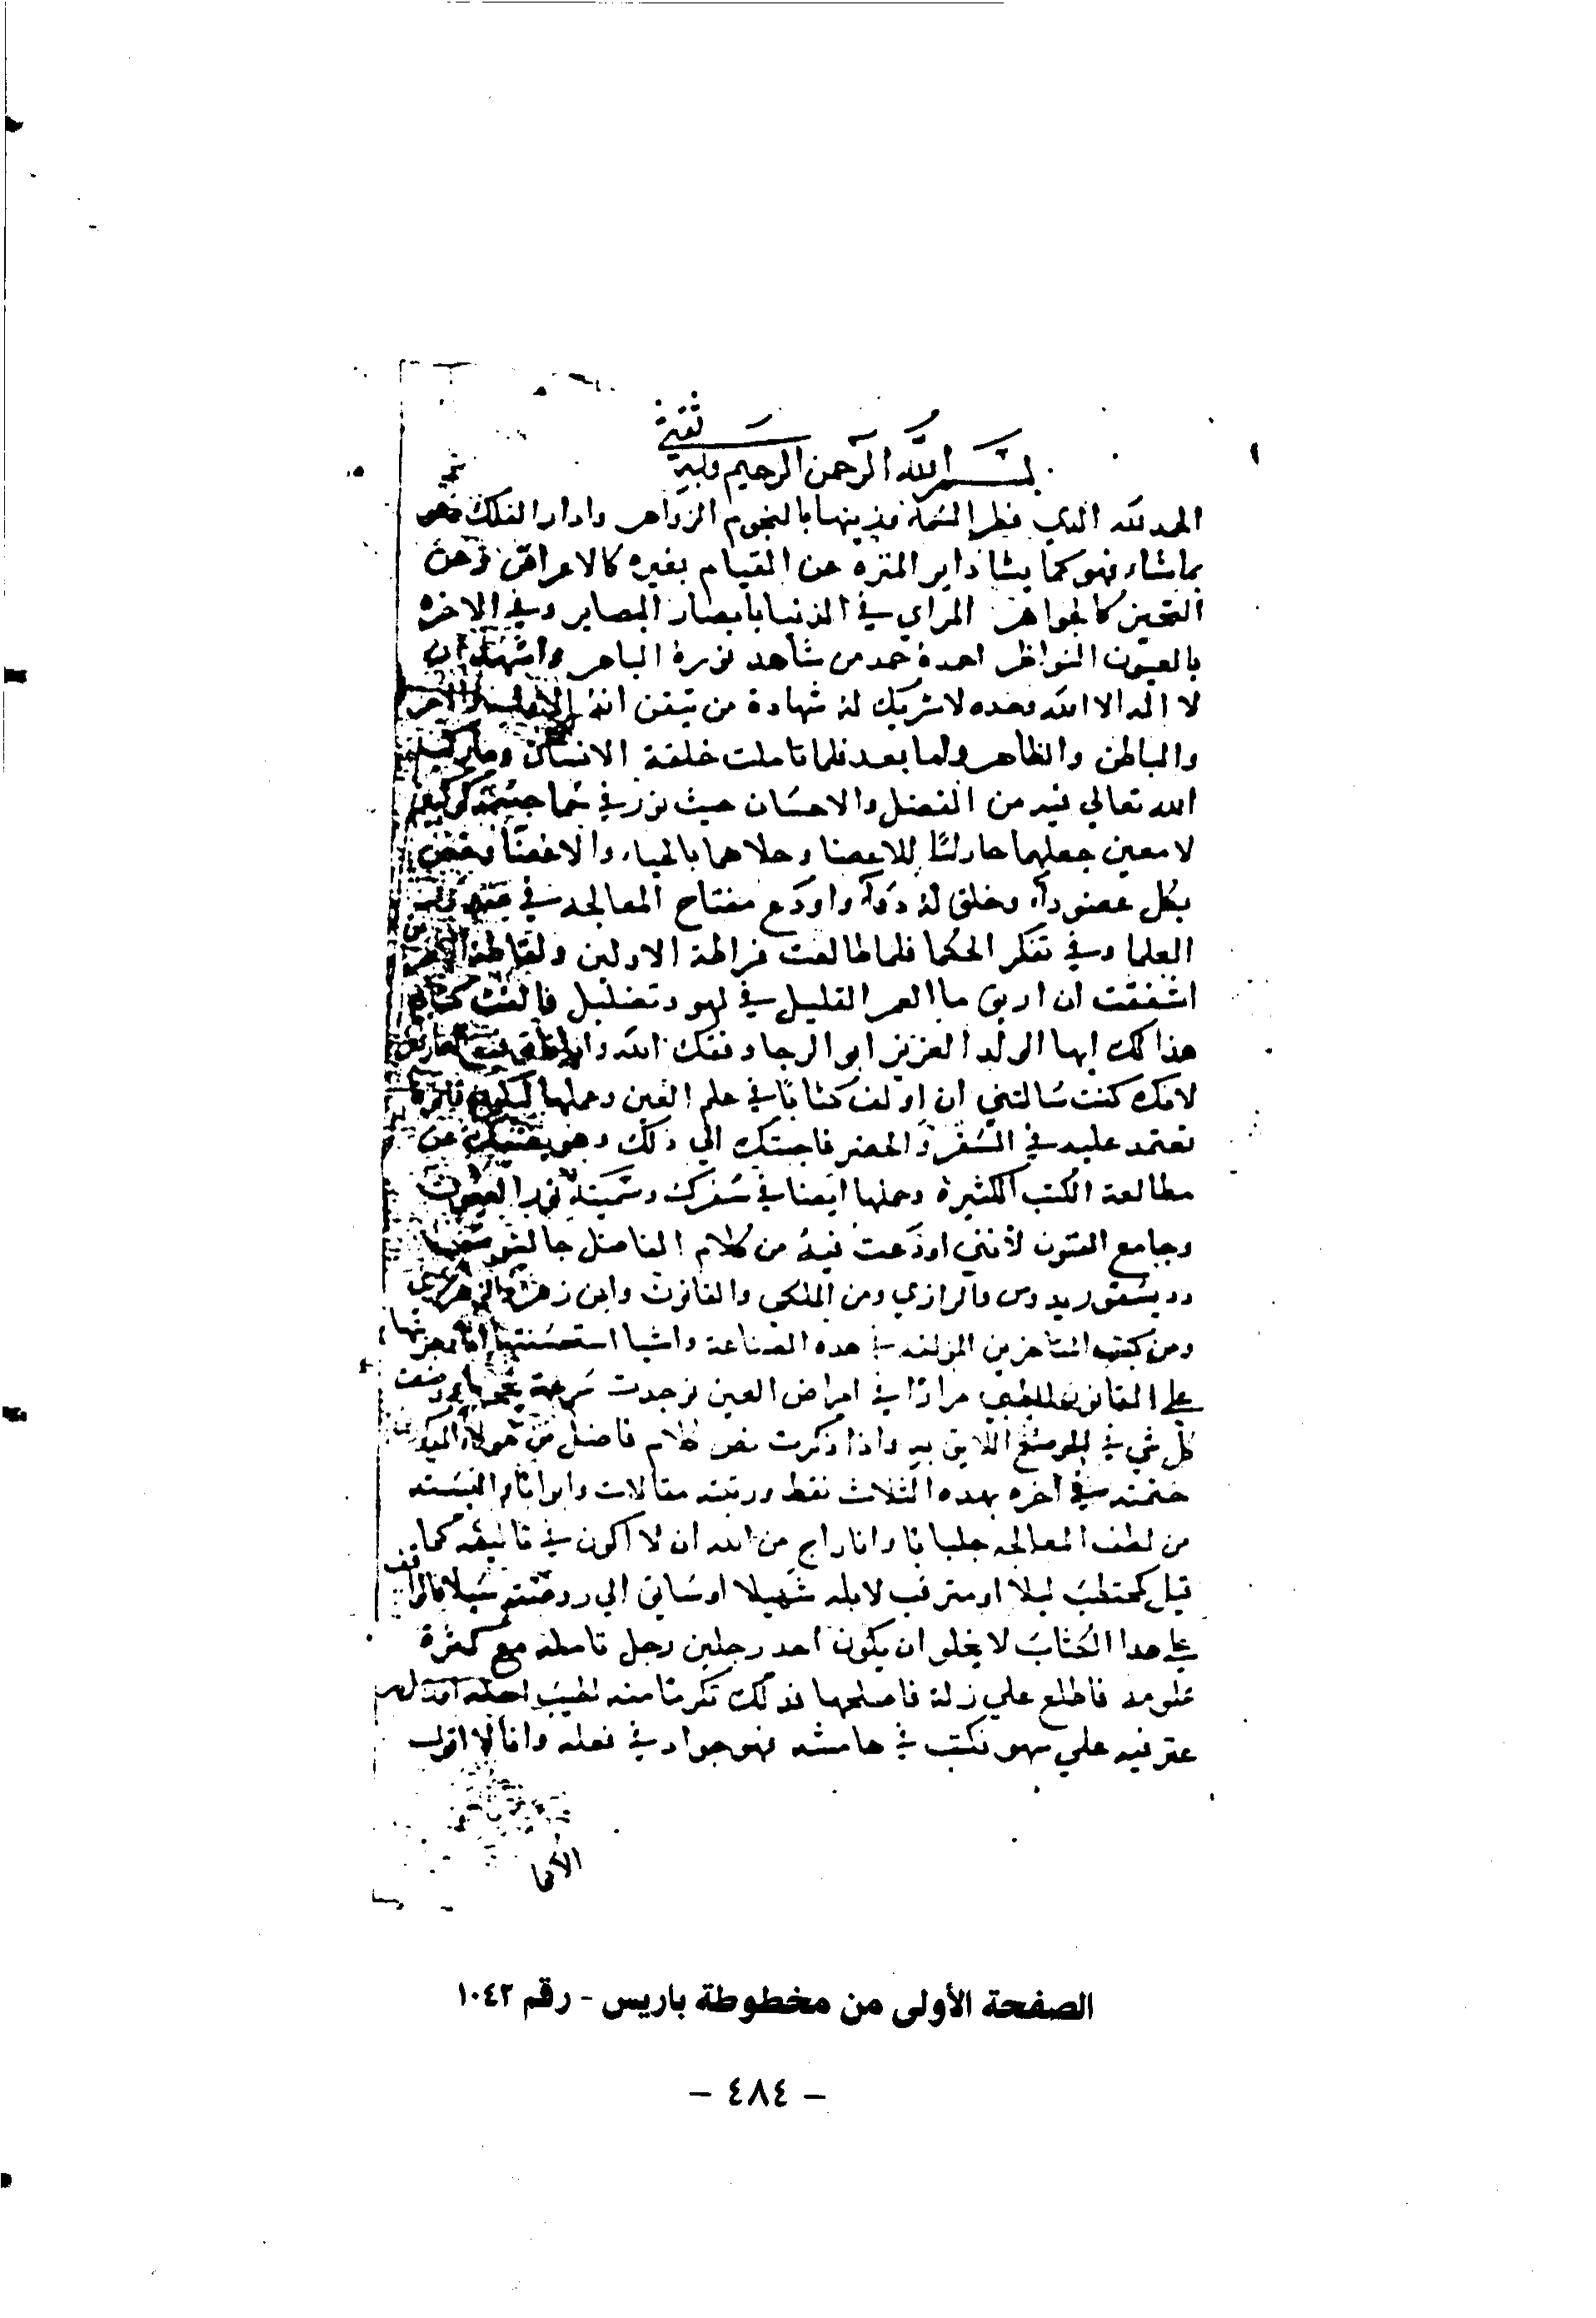 ١
بسم الله الرحمن الرحيم وبه ثقتي
الحمد لله الذي فطر السما وزينها بالنجوم الزواهر وادار الفلك فهو
بما شاء فهو كما يشا داير المنزه عن القيام بغيره كالاعراض وعن
التحيز كالجواهر المراي في الدنيا بابصار البصاير وفي الاخره
بالعيون النواظر احمدة حمد من شاهد نورة الباهر واشهد ان
لا اله الا الله وحده لا شريك له شهادة من تيقن انه الاول والاخر
والباطن والظاهر واما بعد فلما تاملت خلقة الانسان وما
الله تعالي فيه من الفضل والاحسان حيث نور في سما جسمه كوكبين
لامعين جعلهما حارسًا للاعضا وحلاهما بالحياء والاغضا وخص
بكل عضو دآء وخلق له دوآء واودع مفتاح المعالجه في
العلما وفي تفكر الحكما فلما طالعت قراطة الاولين ولقاطة
اشفقت ان اريق ما العمر القليل في لهو وتضليل فالفت كتابي
هذا لك ايها الولد العزيز ابو الرجا وفقك الله
لانك كنت سالتني ان اولف كتابًا في علم العين وعملها ليكون
تعتمد عليه في السفر والحضر فاجبتك الي ذلك وهو يغنيك عن
مطالعة الكتب الكثيرة وحملها ايضا في سفرك وسميته نور العيون
وجامع الفنون لانني اودعت فيه من كلام الفاضل جالينوس
وديسقوريدوس والرازي ومن الملكي والقانون وابن زهر والزهراوي
ومن كتب المتاخرين المولفه في هده الصناعة واشيا استحسنتها انا وجربتها
علي القانون الطبي مرارًا في امراض العين فوجدت سرعة ووضعت
كل شي في الموضع اللايق به واذا ذكرت نص كلام فاضل من هولاء المذكورين
ختمته في اخره بهده الثلاث نقط ورتبته مقالات وابوابًا والبسته
من لطف المعالجه جلبابًا وانا راج من الله ان لا اكون في تاليفه كما
قيل كمحتطب ليلا او مترقب لابله سهيلا او ساق الي روضته سيلا فالواقف
علي هدا الكتاب لا يخلو ان يكون احد رجلين رجل تامله مع كثرة
علومه فاطلع علي زلة فاصلحها فذلك تكرمًا منه لطيب اصله او
عثر فيه علي سهو فكتب في هامشه فهو جواد في فعله وانا لا اقول
الا كما
الصفحة الأولى من مخطوطة باريس - رقم ١٠٤٢
- ٤٨٤ -